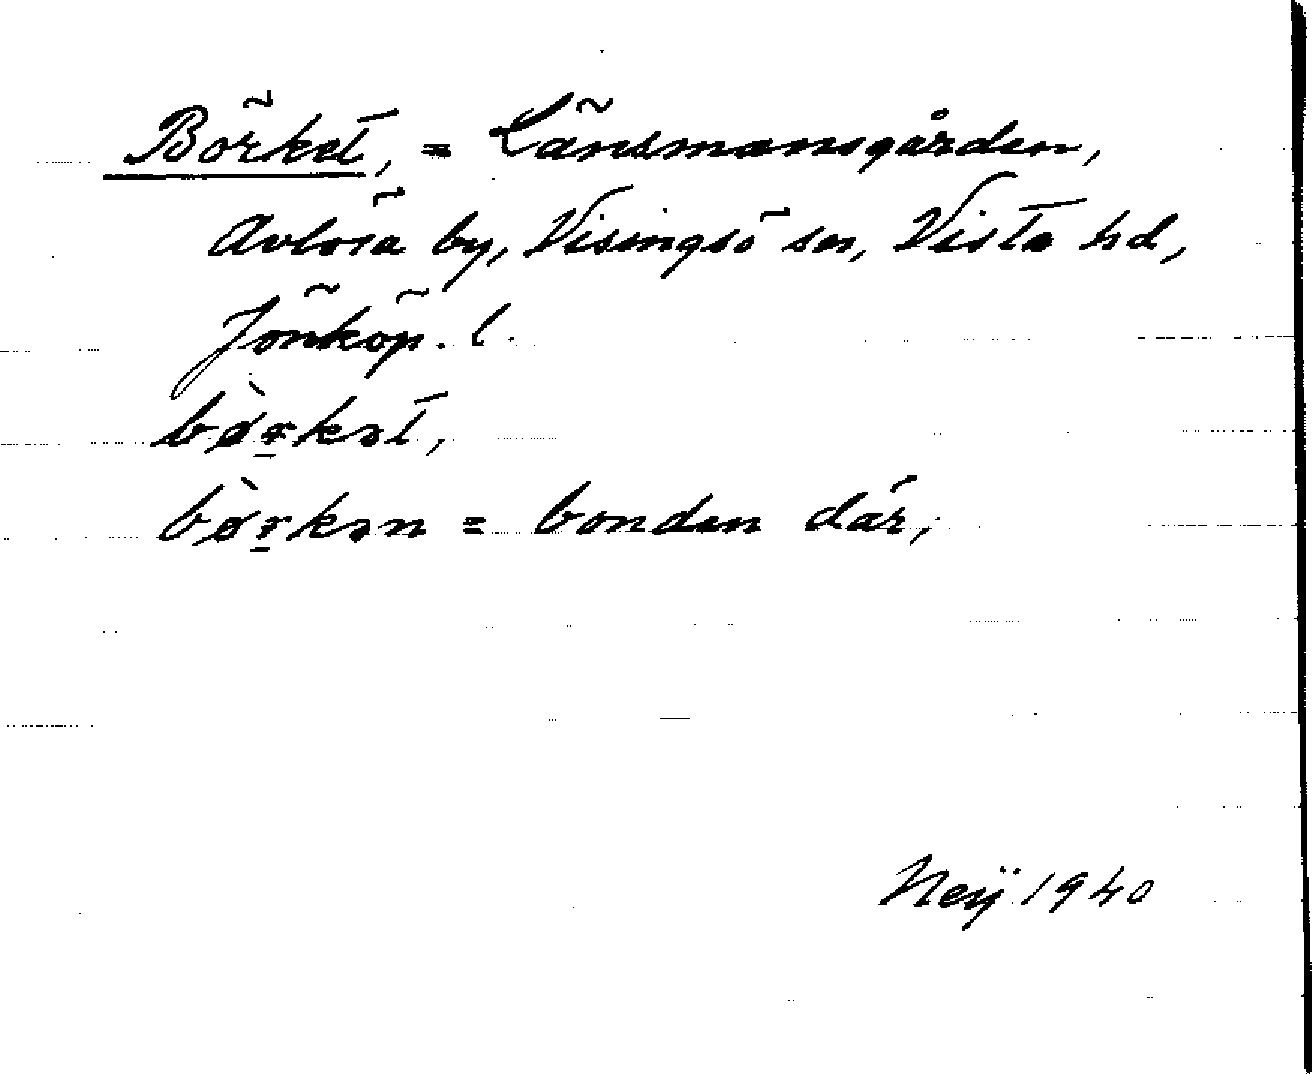 Börket, = Länsmansgården,
Avlösa by, Visingsö sn, Vista hd,
Jönköp. l.
bø̀r̠kət,
bø̀r̠kən = bonden där,
Neij 1940